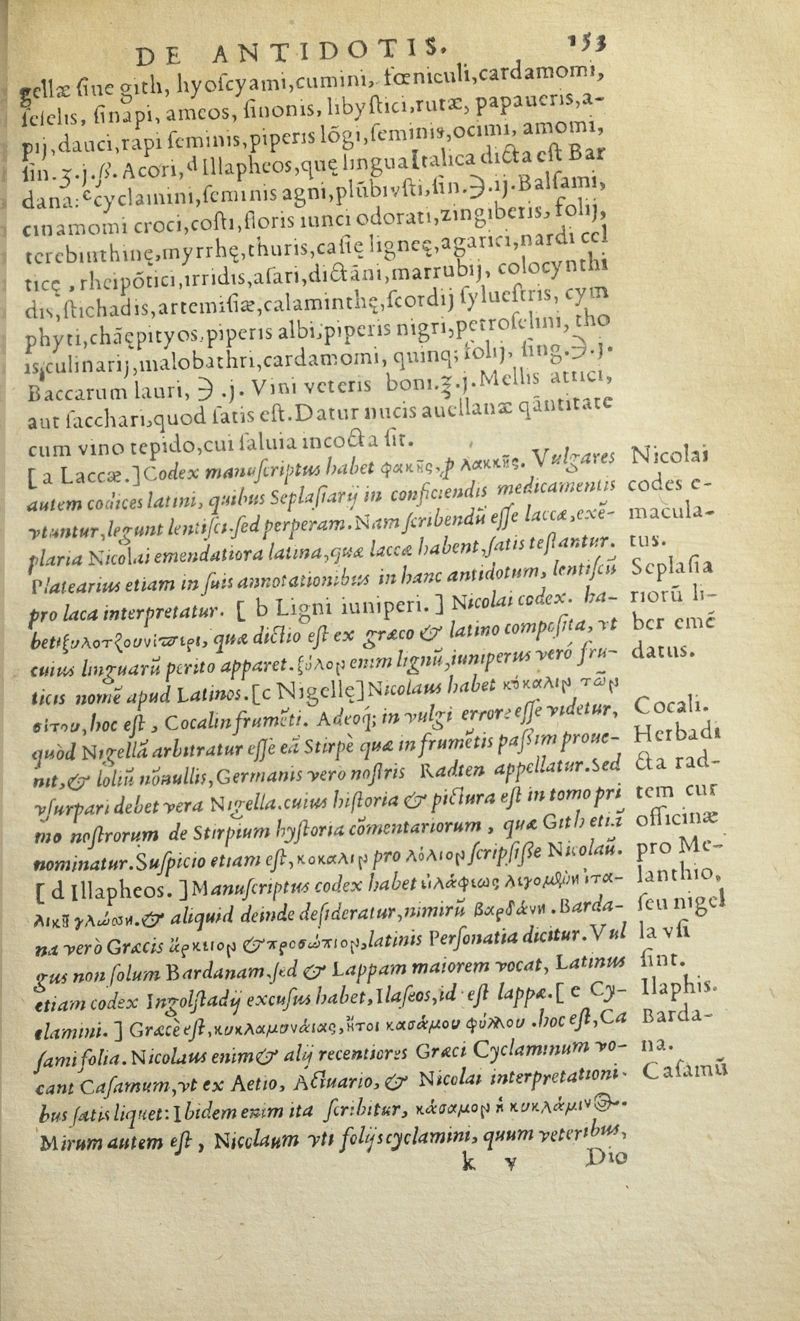 DE ANTIDOTIS. 153
gellæ ſiue gith, hyoſcyami, cumini, fœniculi, cardamomi,
ſeſelis, ſinapi, ameos, ſinonis, libyſtici, rutæ, papaueris, a-
pij, dauci, rapi ſeminis, piperis lõgi, ſeminis, ocimi, amomi,
ſin.ʒ.j.ß. Acori, d Illapheos, quę lingua Italica dicta eſt Bar
dana: e cyclamini, ſeminis agni, plũbi vſti, ſin.Э.ij. Balſami,
cinamomi croci, coſti, floris iunci odorati, zingiberis, folij,
terebinthinę, myrrhę, thuris, caſię ligneę, agarici, nardi cel
ticę, rheipõtici, irridis, aſari, dictãni, marrubij, colocynthi
dis, ſtichadis, artemiſiæ, calaminthę, ſcordij ſylueſtris, cym
phyti, chãępityos, piperis albi, piperis nigri, petroſelini, tho
is, culinarij, malobathri, cardamomi, quinq; folij, ſing.Э.j.
Baccarum lauri, Э.j. Vini veteris boni.℥.j. Mellis attici,
aut ſacchari, quod ſatis eſt. Datur nucis auellanæ qãntitate
cum vino tepido, cui ſaluia incocta ſit.
[a Laccæ.] Codex manuſcriptus habet φακῆς, p λακκᾶς. Vulgares
autem codices latini, quibus Seplaſiarij in conficiendis medicamentis
vtuntur, legunt lentiſci. ſed perperam. Nam ſcribendũ eſſe laccæ, exẽ-
plaria Nicolai emendatiora latina, quæ laccæ habent, ſatis teſtantur.
Platearius etiam in ſuis annotationibus in hanc antidotum, lentiſcũ
pro laca interpretatur. [b Ligni iuniperi.] Nicolai codex. ha-
bet ξυλοτζουνίπερι, quæ dictio eſt ex græco & latino compoſita, vt
cuius linguarũ perito apparet. ξύλοp enim lignũ, iuniperus vero fru-
ticis nomẽ apud Latinos. [c Nigellę] Nicolaus habet κόκκαλιp τῶp
σίτου, hoc eſt, Cocalin frumẽti. Adeoq; in vulgi errore eſſe videtur,
quòd Nigellã arbitratur eſſe eã Stirpẽ quæ in frumẽtis paſsim proue-
nit, & loliũ nõnullis, Germanis vero noſtris Radten appellatur. Sed
vſurpari debet vera Nigella. cuius hiſtoria & pictura eſt in tomo pri
mo noſtrorum de Stirpium hyſtoria cõmentariorum, quæ Gith etiã
nominatur. Suſpicio etiam eſt, κοκάλιp pro λόλιοp ſcripſiſſe Nicolaũ.
[d Illapheos.] Manuſcriptus codex habet ὐλάφεως λεγομένη ἰτα-
λικῆ γλώσση. & aliquid deinde deſideratur, nimirũ βαρδάνη. Barda-
na verò Græcis ἄρκτιοp & προσώπιοp, latinis Perſonatia dicitur. Vul
gus non ſolum Bardanam, ſed & Lappam maiorem vocat, Latinus
etiam codex Ingolſtadij excuſus habet, Ilafeos, id eſt lappæ. [e Cy-
clamini.] Græcè eſt, κυκλαμονάιας, ἤτοι κασάμου φύλλου. hoc eſt, Ca
ſami folia. Nicolaus enim & alij recentiores Græci Cyclaminum vo-
cant Caſamum, vt ex Aetio, Actuario, & Nicolai interpretationi-
bus ſatis liquet: Ibidem enim ita ſcribitur, κάσαμοp ἢ κυκλάμινος.
Mirum autem eſt, Nicolaum vti folijs cyclamini, quum veteribus,
k v Dio
Nicolai
codes e-
macula-
tus.
Seplaſia
riorũ li-
ber emẽ
datus.
Cocali.
Herba di
cta rad-
tem cur
officinæ
pro Me-
lanthio,
ſeu nigel
la vſi
ſint.
Ilaphis.
Barda-
na.
Caſamũ